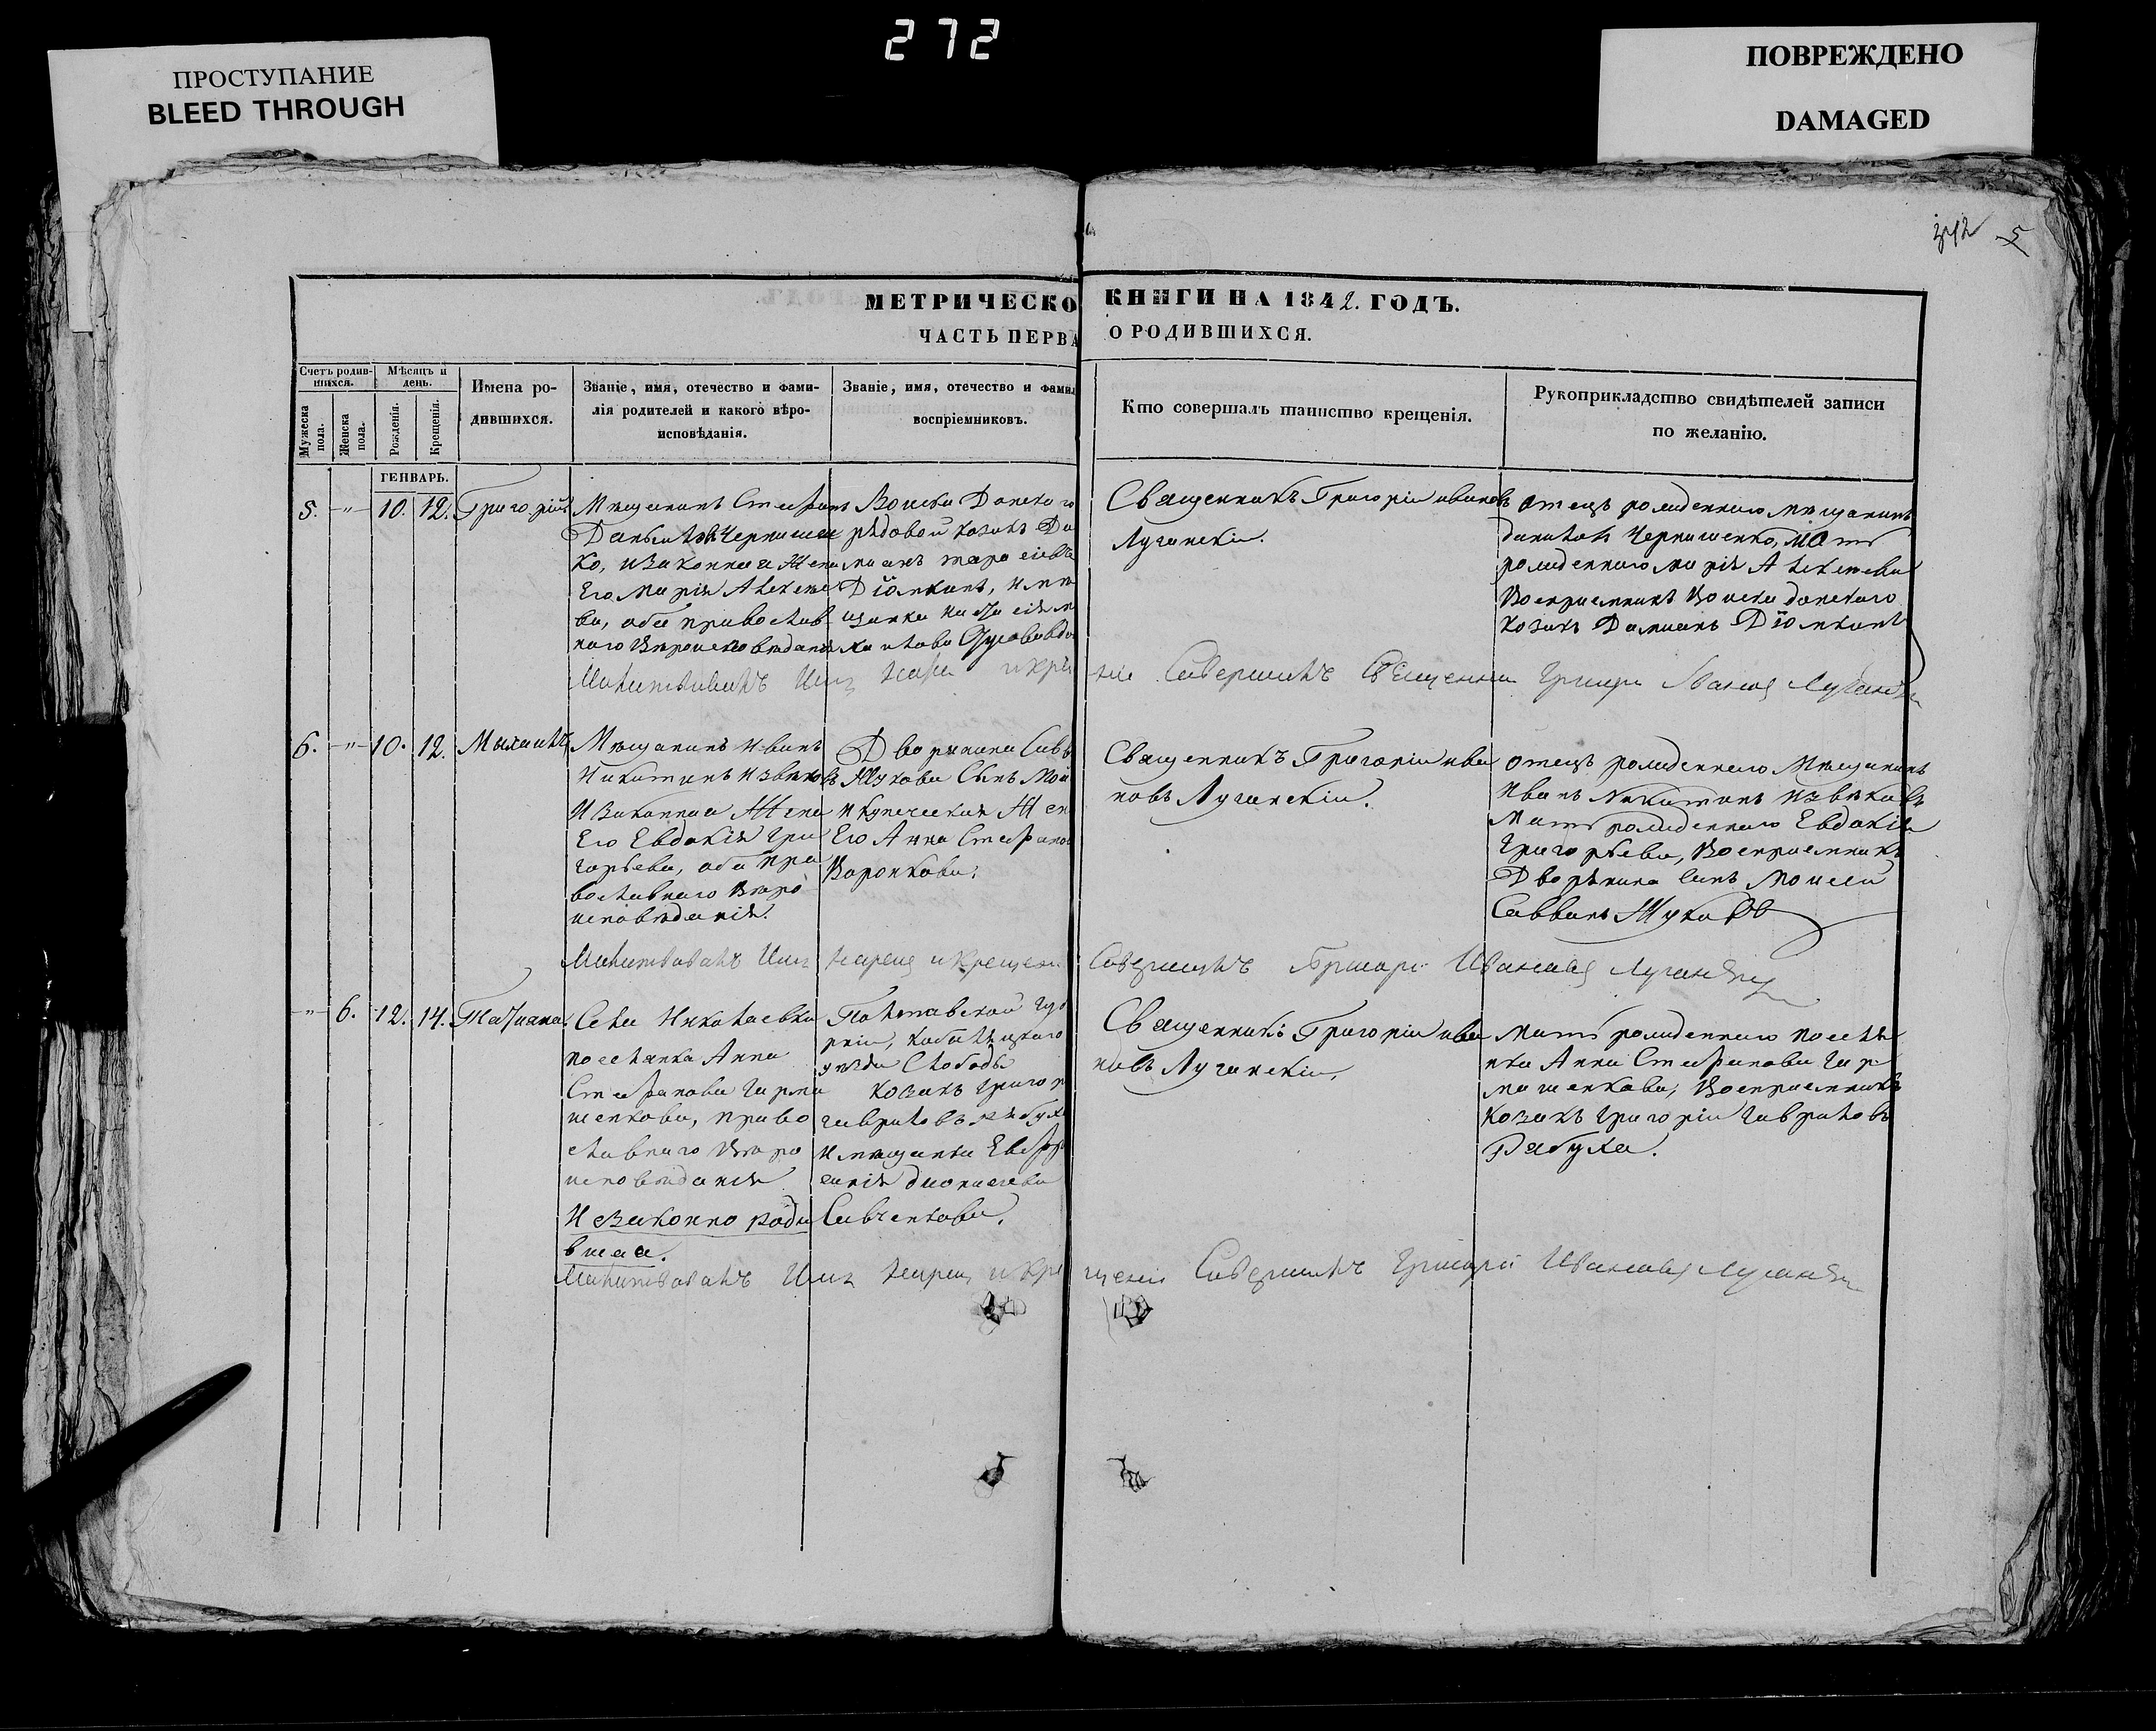 272
ПРОСТУПАНИЕ
BLEED THROUGH
ПОВРЕЖДЕНО
DAMAGED
342 5
МЕТРИЧЕСКО КНИГИ НА 1842. ГОДЪ.
ЧАСТЬ ПЕРВА О РОДИВШИХСЯ.
Счетъ родив-
шихся.
Мужеска
пола.
Женска
пола.
Мѣсяцъ и
день.
Рожденія.
Крещенія.
Имена ро-
дившихся.
Званіе, имя, отечество и фами-
лія родителей и какого вѣро-
исповѣданія.
Званіе, имя, отечество и фамил
воспріемниковъ.
Кто совершалъ таинство крещенія.
Рукоприкладство свидѣтелей записи
по желанію.
ГЕНВАРЬ.
5. -"- 10. 12. Григорій
Мѣщанинъ Стефанъ
Даниловъ Чернишен
ко, изаконная Жена
Его Марія Алексѣе
ва, оба православ
наго Вѣроисповѣданія
Войска Донскаго
рядовой козакъ Да
міанъ
Діомкинъ, имѣ
щанка
Священникъ Григорій ивановъ
Луганскій.
отецъ рожденнаго мѣщанинъ
даниловъ Чернишенко, мать
рожденнаго марія Алексѣева
Воспріемникъ Войска донскаго
козакъ Даміанъ Діомкинъ
Молитвовалъ Имя Совершилъ Священник Григори Луганск
6. -"- 10. 12. Михаилъ
Мѣщанинъ иванъ
Никитинъ Извѣковъ
Изаконная Жена
Его Евдокія Гри
горьева, оба пра
вославнаго Вѣро
исповѣданія.
Дворянина Савв
Жукова Сынъ Мои
и купеческая Жен
Его Анна Стефанов
Воронкова.
Священникъ Григорій ива
новъ Луганскій.
отецъ рожденнаго Мѣщанинъ
иванъ Никитинъ Извѣковъ
Мать рожденнаго Евдокія
Григорьева, Воспріемникъ
Дворянина синъ Моисей
Саввинъ Жуковъ
Молитвовалъ Имя нарец икрещен Совершилъ Григори Иванов Луганск
-"- 6. 12. 14. Татиана.
Села Николаевки
поселянка Анна
Стефанова Гарма
шенкова, право
славнаго Вѣро
исповѣданія
Незаконно роди
вшая.
Полтавской губ
рніи, кобѣляцкаго
уѣзда Слободы
козакъ Григор
гавриловъ рябух
имѣщанка Евфр
синія дионисіева
Савченкова.
Священникъ Григорій ива
новъ Луганскій.
мать рожденнаго поселя
нка Анна Стефанова Гар
машенкова, Воспріемникъ
козакъ григорій гавриловъ
Рябуха.
Молитвовалъ Имя нарец икре щеніе Совершилъ Григорій Иванов Луганск